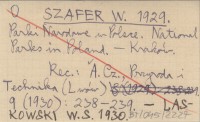 O SZAFER W. 1929.
Parki Narodowe w Polsce. National
Parks in Poland. — Kraków.
Rec.: A. Cz., Przyroda i
Technika (Lwów)
9 (1930): 238-239. — LAS-
KOWSKI W.S. 1930.